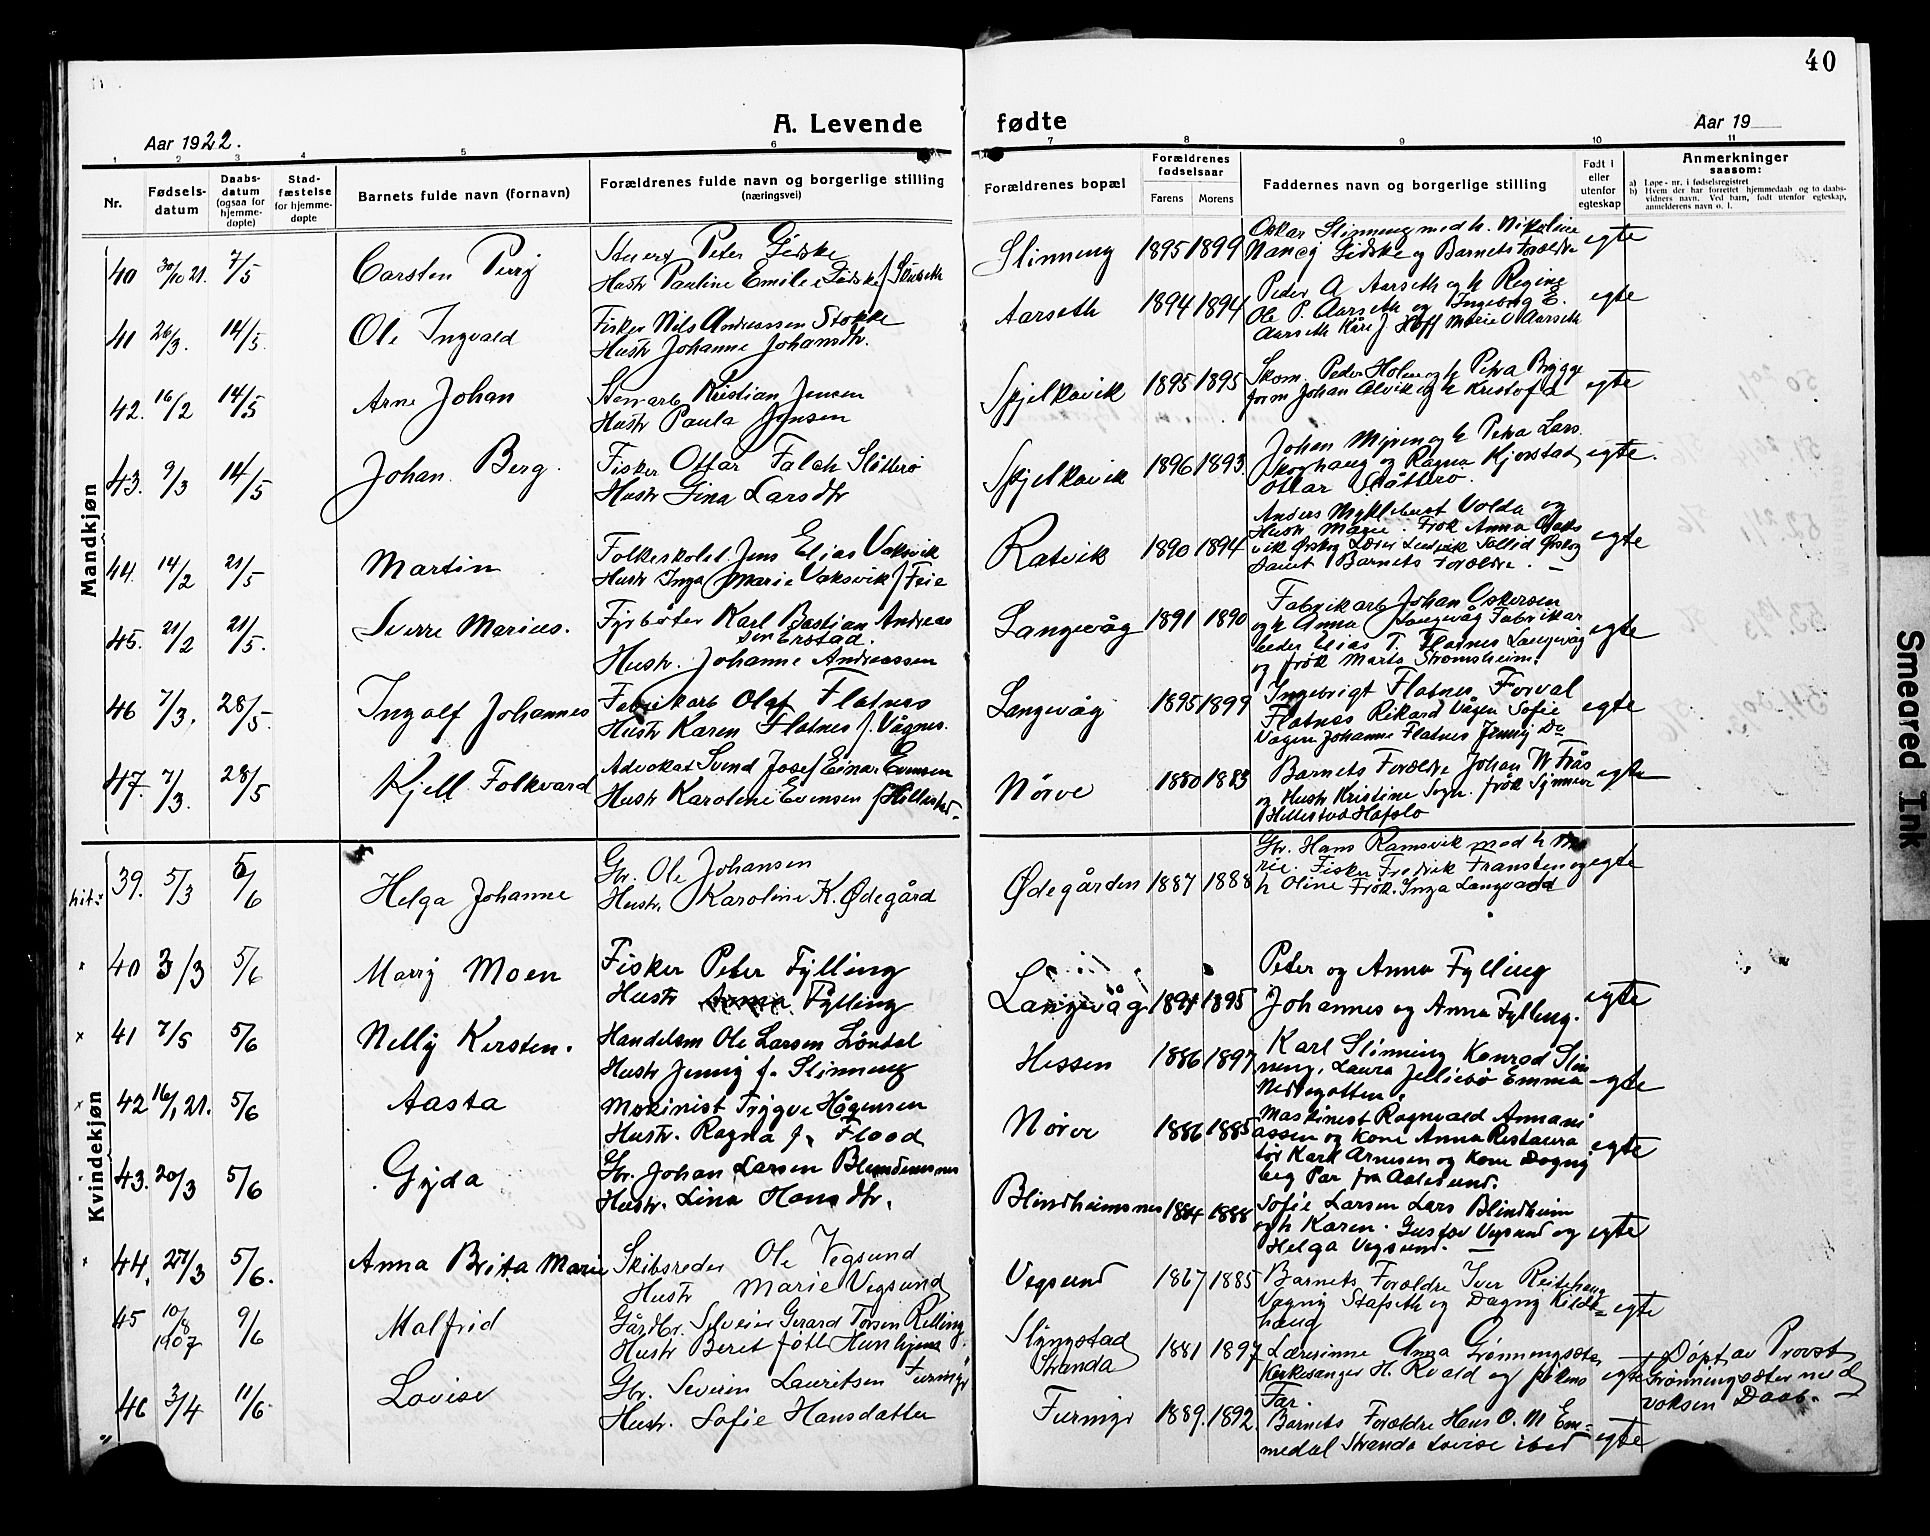 40
A. Levende fødte
Aar 1922.
Aar 19
1 2 3 4 5 6 7 8 9 10 11
Nr.
Fødsels-
datum
Daabs-
datum
(ogsaa for
hjemme-
døpte)
Stad-
fæstelse
for hjemme-
døpte
Barnets fulde navn (fornavn)
Forældrenes fulde navn og borgerlige stilling
(næringsvei)
Forældrenes bopæl
Forældrenes
fødselsaar
Farens Morens
Faddernes navn og borgerlige stilling
Født i
eller
utenfor
egteskap
Anmerkninger
saasom:
a) Løpe-nr. i fødselsregistret
b) Hvem der har forrettet hjemmedaab og to daabs-
vidners navn. Ved barn, født utenfor egteskap,
anmelderens navn o. l.
Mandkjøn
40 30/10 21. 7/5 Carsten Perry
Peter Gidske
Hustr Pauline Emilie Gidske f
Slinneng 1895 1899
Oskar Slinneng med h. Nikoline
Nancy Gidske og Barnets Forældre
egte
41 26/3. 14/5. Ole Ingvald
Fisker Nils Andreassen Stokke
Hustr Johanne Johansdtr.
Aarseth 1894 1894
Peder A Aarseth og h Regine
Ole P. Aarseth og Ingeborg E.
Aarseth Kåre J Hoff Marie Aarseth
egte
42. 16/2 14/5 Arne Johan
Kristian Jensen
Hustr Paula Jensen
Spjelkavik 1895 1895
Skom. Peder Holm og h Petra Brygge
form Johan Alvik og h
egte
43. 9/3 14/5 Johan Berg.
Fisker Ottar Falch Sløtterø
Hustr Gina Larsdtr
Spjelkavik 1896 1893.
Johan Myren og h Petra Lars
Skorhaug og Ragna Kjorstad,
Ottar Slåtterø.
egte.
44. 14/2 21/5 Martin
Jens Elias Vaksvik
Hustr Inga Marie Vaksvik f Feie
Ratvik 1890 1894
Anders Myklebust Volda og
Hustr Marie. Frøk Anna Vaks
vik Ørskog Lærer Ludvik Sollid Ørskog
samt Barnets Forældre. —
egte
45. 21/2 21/5. Sverre Marius.
Fyrbøter Karl Bastian Andreas
sen Erstad.
Hustr. Johanne Andreassen
Langevåg 1891 1890
Fabrikarb Johan Oskersen
og h Anna Langevåg Fabrikar
beder Elias T. Flatnes Langevåg
og frøk Marta Strømsheim.
egte
46 7/3. 28/5. Ingolf Johannes
Fabrikarb Olaf Flatnes
Hustr Karen Flatnes f. Vågnes.
Langevåg 1895 1899
Ingebrigt Flatnes Torval
Flatnes Rikard Vågen Sofie
Vågen Johanne Flatnes Jenny
egte
47. 7/3. 28/5 Kjell Folkvard
Advokat Svend Josef Einar Evensen
Hustr Karoline Evensen f Hillestad.
Nørve 1880 1883
Barnets Forældre Johan W Frås
og Hustr Kristine Sogn. frøk Synnøve
Hillestad Hafslo
egte
Kvindekjøn
39. 5/3 5/6 Helga Johanne
Gbr. Ole Johansen
Hustr. Karoline K. Ødegård
Ødegården 1887 1888
Gbr. Hans Ramsvik med h Ma
rie. Fisker Fredrik Fransten og
h Oline Frøk. Inga Langvad
egte
40 3/3 5/6 Marry Moen
Fisker Peter Fylling
Hustr Fylling
Langevåg 1894 1895
Peter og Anna Fylling
Johannes og Anna Fylling.
egte
x 41 7/5 5/6 Nelly Kersten.
Handelsm Ole Larsen Løndal
Hustr Jenny f. Slinneng
Hessen 1886 1897
Karl Slinning Konrad Slin
ning, Laura Emma
Nedregotten.
egte
x 42 16/1, 21. 5/6 Aasta
Maskinist Trygve Hågensen
Hustr. Ragna f. Flood
Nørve 1886 1885
Maskinist Ragnvald Annani
assen og kone Anna Restaura
tør Karl Arnesen og kone Dagny
beg Par fra Aalesund.
egte
43. 20/3 5/6 Gyda
Gbr. Johan Larsen Blindheimsnes
Hustr. Lina Hansdtr.
Blindheimsnes 1884 1888
Sofie Larsen Lars Blindheim
og h Karen. Gustav Vegsund og
Helga Vegsund. —
egte
44. 27/3 5/6. Anna Brita Marie
Skibsreder Ole Vegsund
Hustr Marie Vegsund
Vegsund 1867 1885
Barnets Forældre Iver Reitehaug
Vagny Stafseth og Dagny Kildt
haug
egte
45 10/8 1907 9/6 Malfrid
Gårdbr. Gerard Torsen Relling
Hustr Beret født
Slyngstad
Stranda 1881 1897
Lærerinne Anna Grønningsæter
Kirkesanger H. Rvald og pikens
Far.
egte
Døpt av Provst
Grønningsæter med
voksen Daab.
46 3/4 11/6. Lovise
Gbr. Severin Lauritsen
Hustr. Sofie Hansdatter
1889. 1892.
Barnets Forældre Hans O. M Em=
medal Stranda Lovise ibid
egte
Smeared Ink